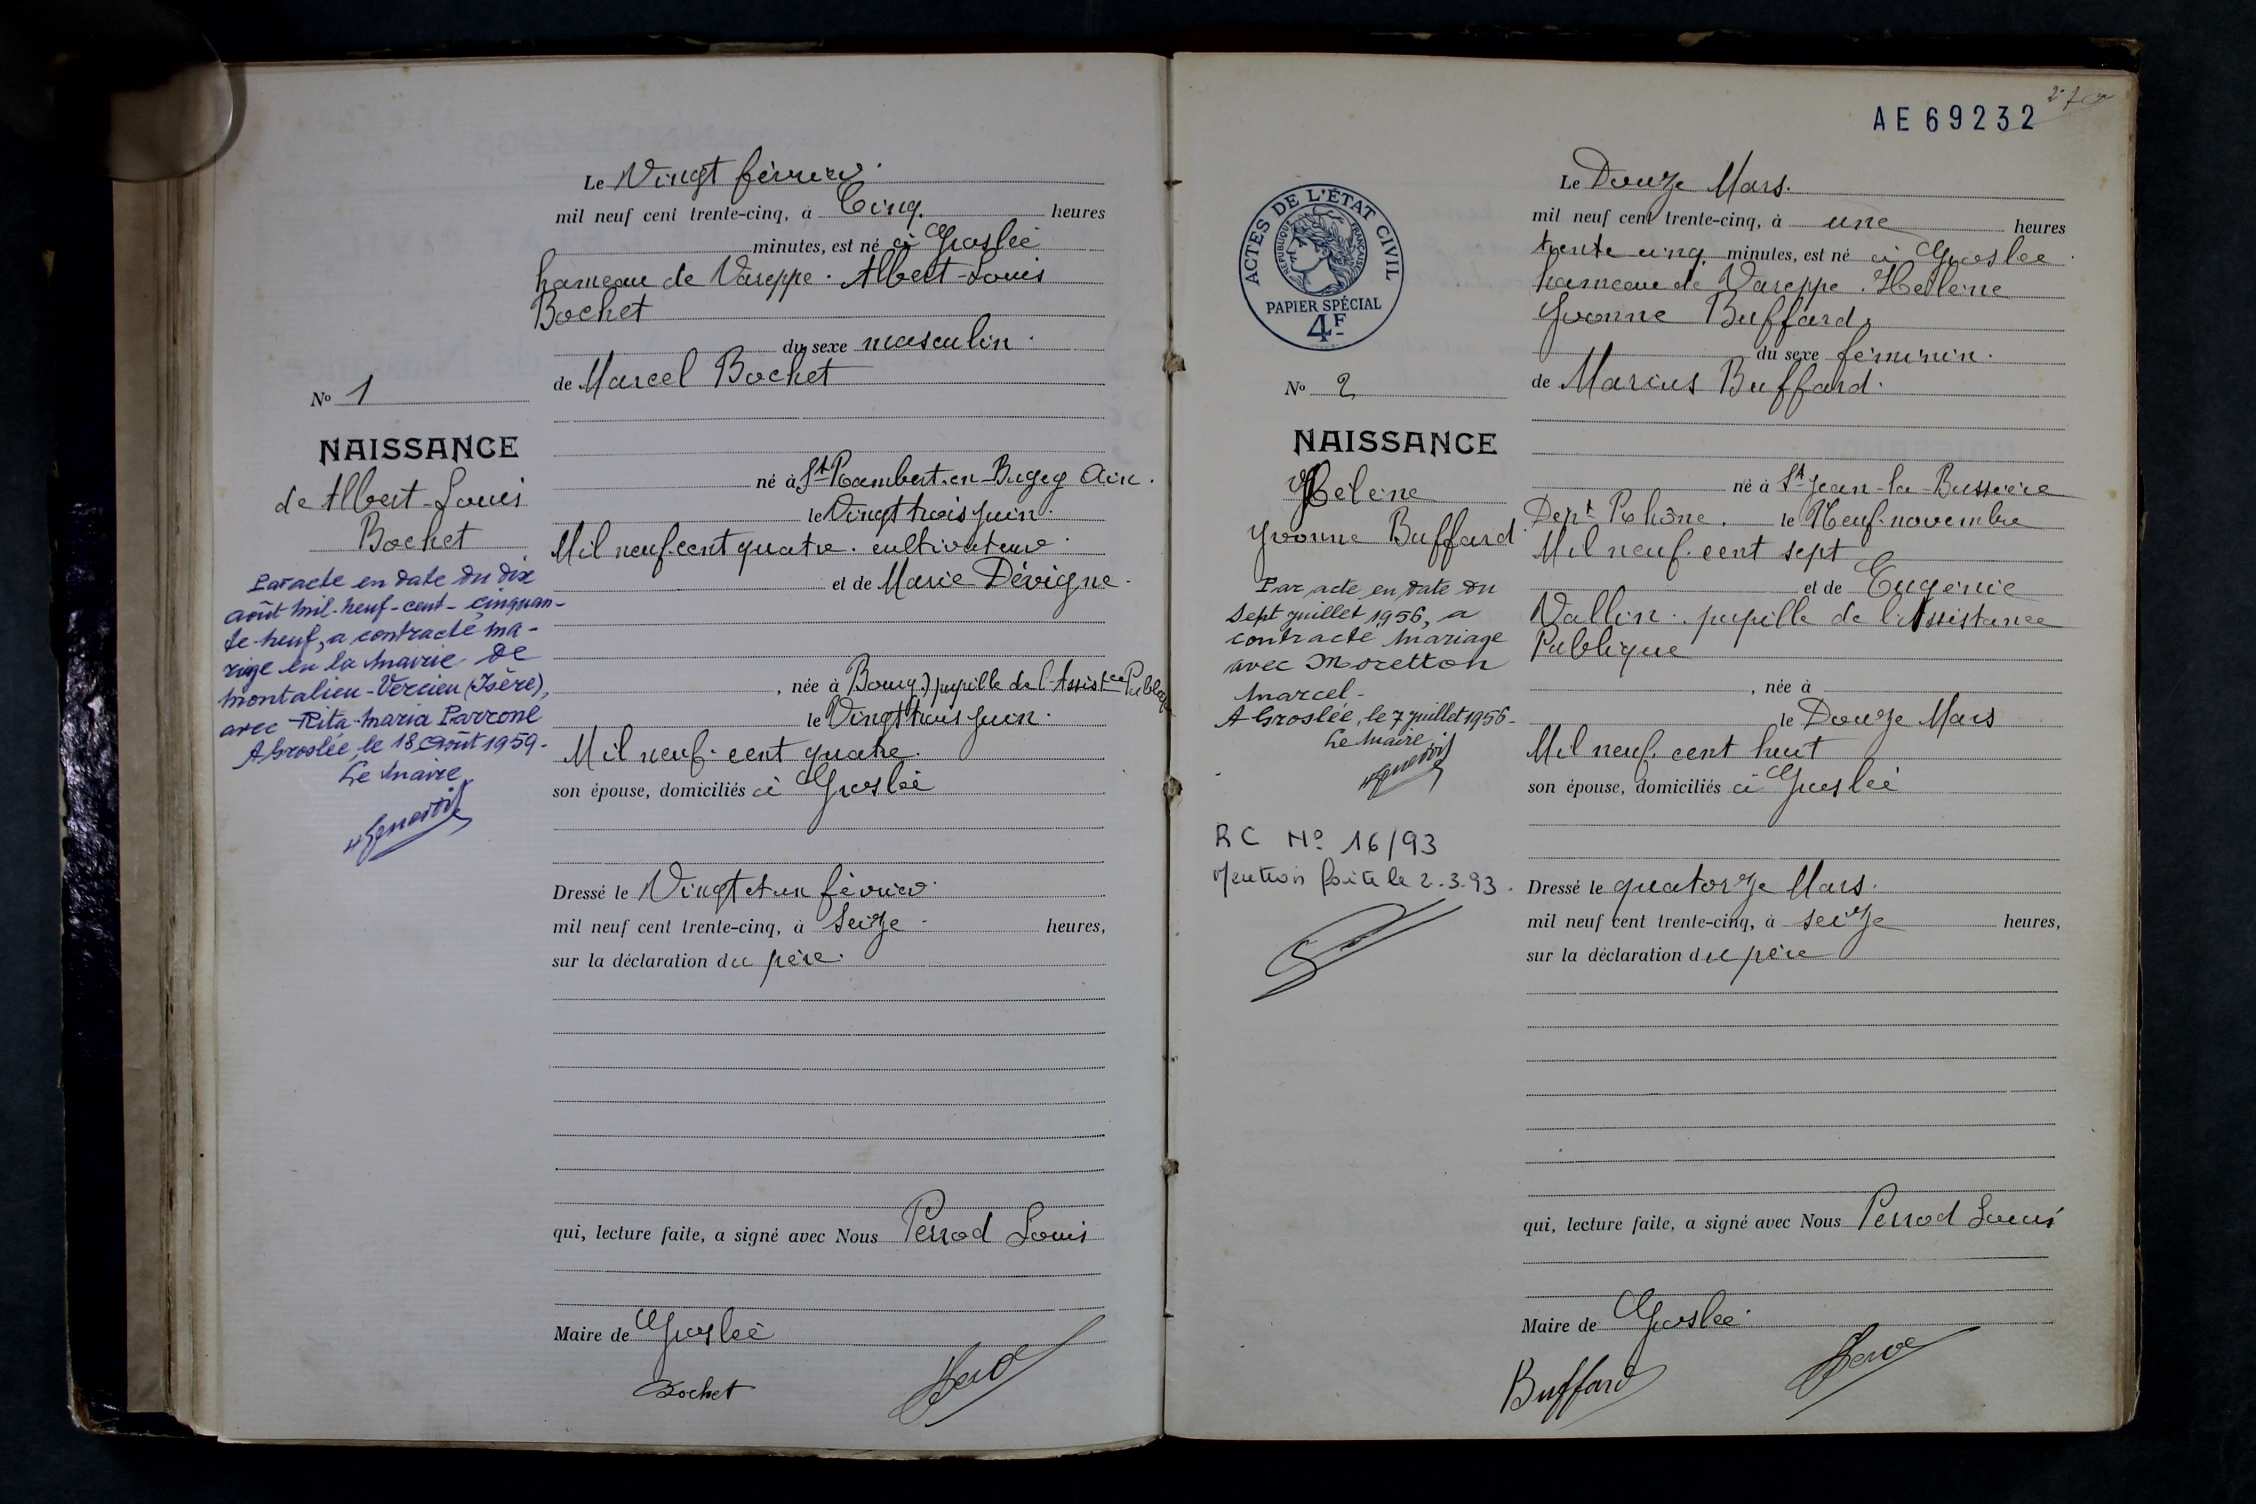 Le Vingt février.
mil neuf cent trente-cinq, à Cinq. heures
minutes, est né à Groslée
hameau de Vareppe. Albert-Louis
Bochet
du sexe masculin.
de Marcel Bochet
No 1
NAISSANCE
de Albert-Louis
Bochet
né à St Rambert-en-Bugey Ain.
le Vingt trois juin.
Mil neuf cent quatre. cultivateur.
et de Marie Dévigne.
Par acte en date du dix
août mil-neuf-cent-cinquan-
te-neuf, a contracté ma-
riage en la mairie de
Montalieu-Vercieu (Isère),
avec Rita-Maria Parrone
A Groslée, le 18 Août 1959-
Le Maire
, née à Bourg.) pupille de l'Assistce Publique
le Vingt trois juin.
Mil neuf. cent quatre.
son épouse, domiciliés à Groslée
Dressé le Vingt et un février.
mil neuf cent trente-cinq, à Seize - heures,
sur la déclaration du père.
qui, lecture faite, a signé avec Nous Perrod Louis
Maire de Groslée
Bochet
AE 69232
ACTES DE L'ÉTAT CIVIL
RÉPUBLIQUE FRANÇAISE
PAPIER SPÉCIAL
4F
Le Douze Mars.
mil neuf cent trente-cinq, à une heures
trente cinq. minutes, est né à Groslée
hameau de Vareppe. Hélène
Yvonne Buffard.
du sexe féminin.
de Marius Buffard.
No 2
NAISSANCE
Hélène
Yvonne Buffard
né à St Jean-la-Bussière
Dept Rhône. le Neuf novembre
Mil neuf. cent sept
et de Eugénie
Vallin. pupille de l'Assistance
Publique
Par acte en date du
Sept juillet 1956, a
contracté mariage
avec Moretton
Marcel-
A Groslée, le 7 juillet 1956-
Le Maire
RC No 16/93
Mention faite le 2.3.93.
, née à
le Douze Mars
Mil neuf. cent huit
son épouse, domiciliés à Groslée
Dressé le quatorze Mars.
mil neuf cent trente-cinq, à seize heures,
sur la déclaration du père
qui, lecture faite, a signé avec Nous Perrod Louis
Maire de Groslée.
Buffard